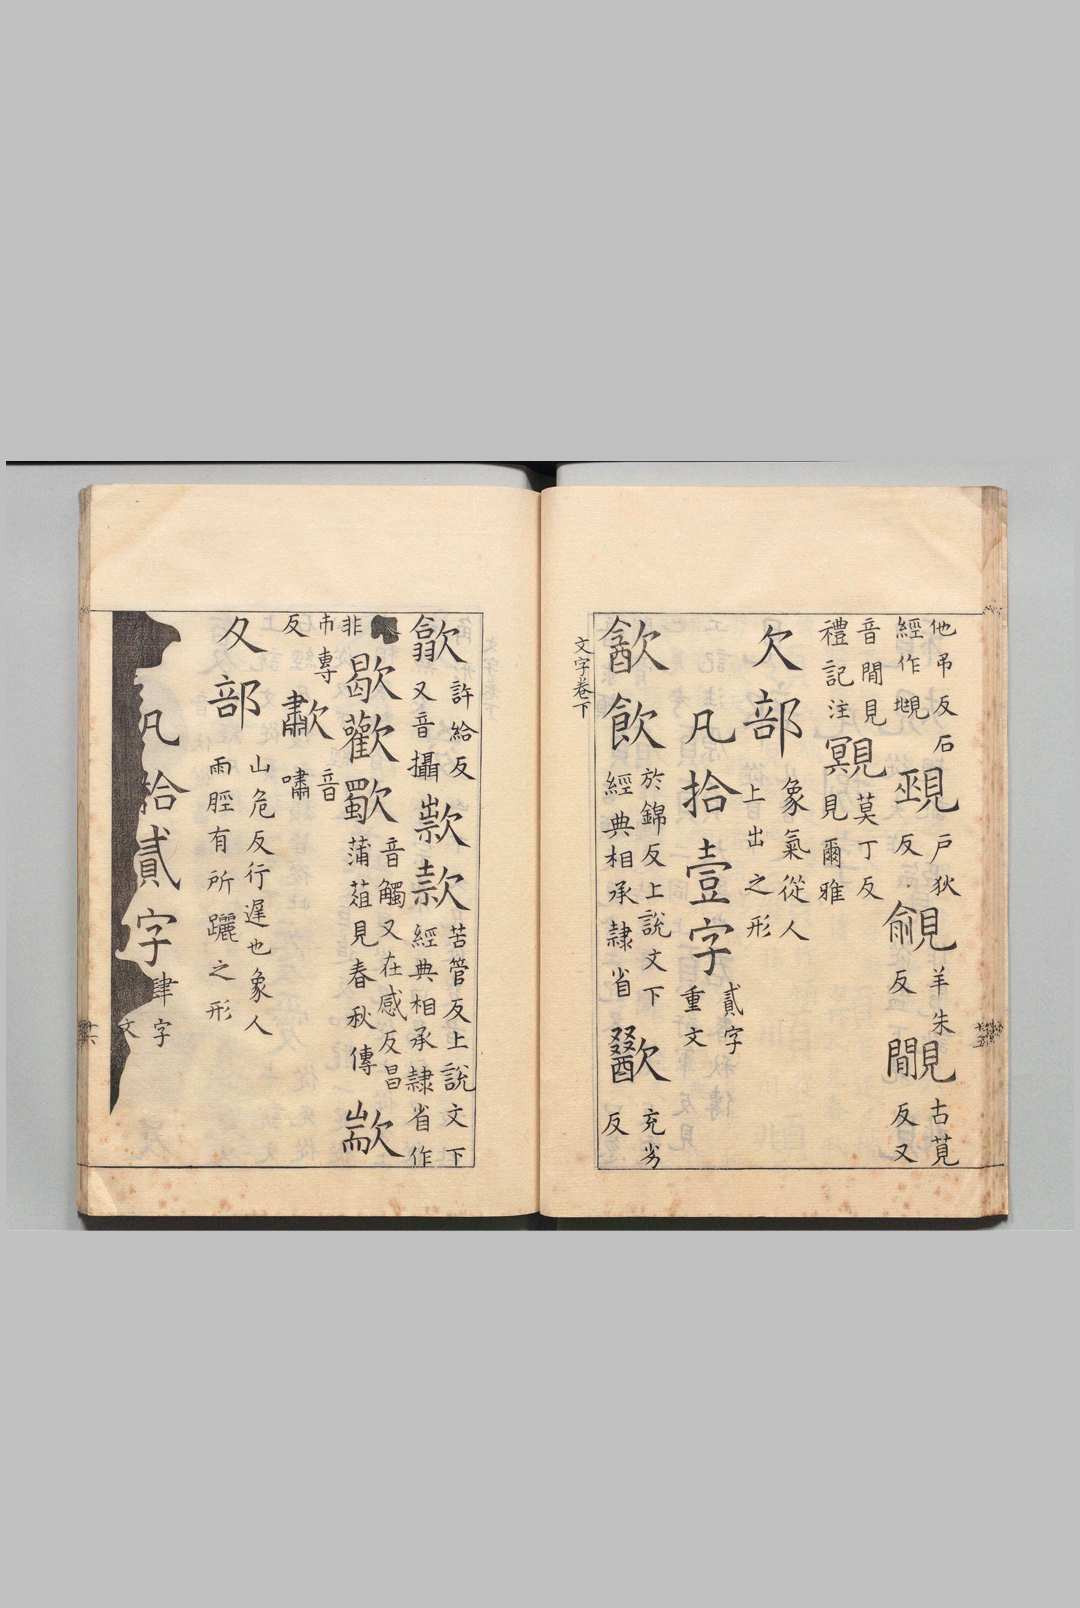 他吊反石
經作覜
覡
戶狄
反
覦
羊朱
反
覵
古莧
反又
音閒見
禮記注
覭
莫丁反
見爾雅
欠部
象氣從人
上出之形
凡拾壹字
貳字
重文
㱃飲
於錦反上說文下
經典相承隸省
歠
充劣
反
歙
許給反
又音攝
款
苦管反上說文下
經典相承隸省作
非
歇歡歜
音觸又在感反昌
蒲葅見春秋傳
歂
市專
反
歗
音
嘯
夊部
山危反行遲也象人
兩脛有所躧之形
凡拾貳字
肆字
文
文字卷下